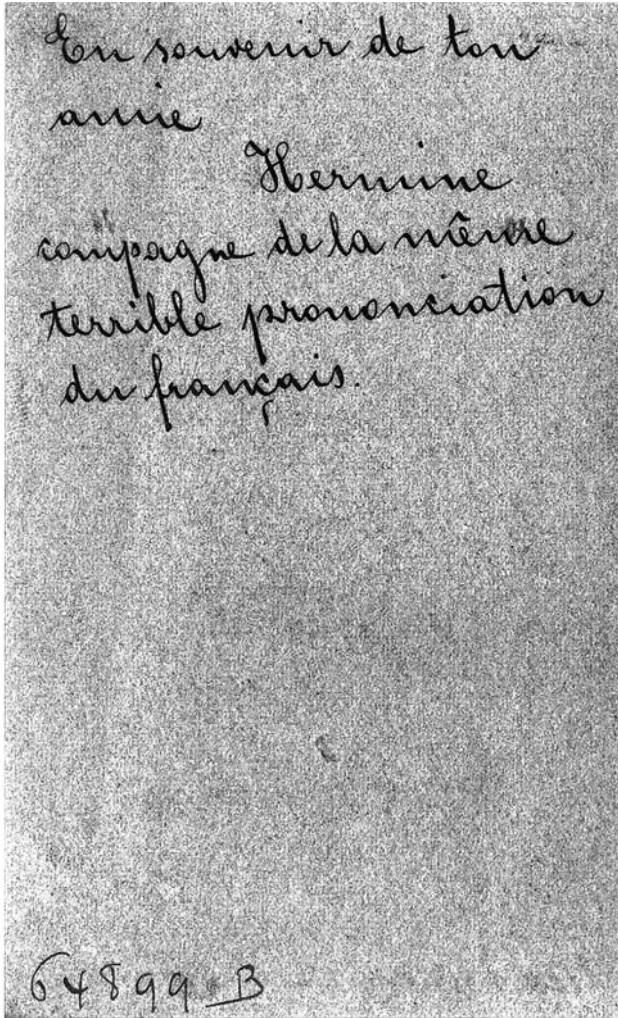 En souvenir de ton
amie
Hermine
compagne de la même
terrible prononciation
du français.
64899 B